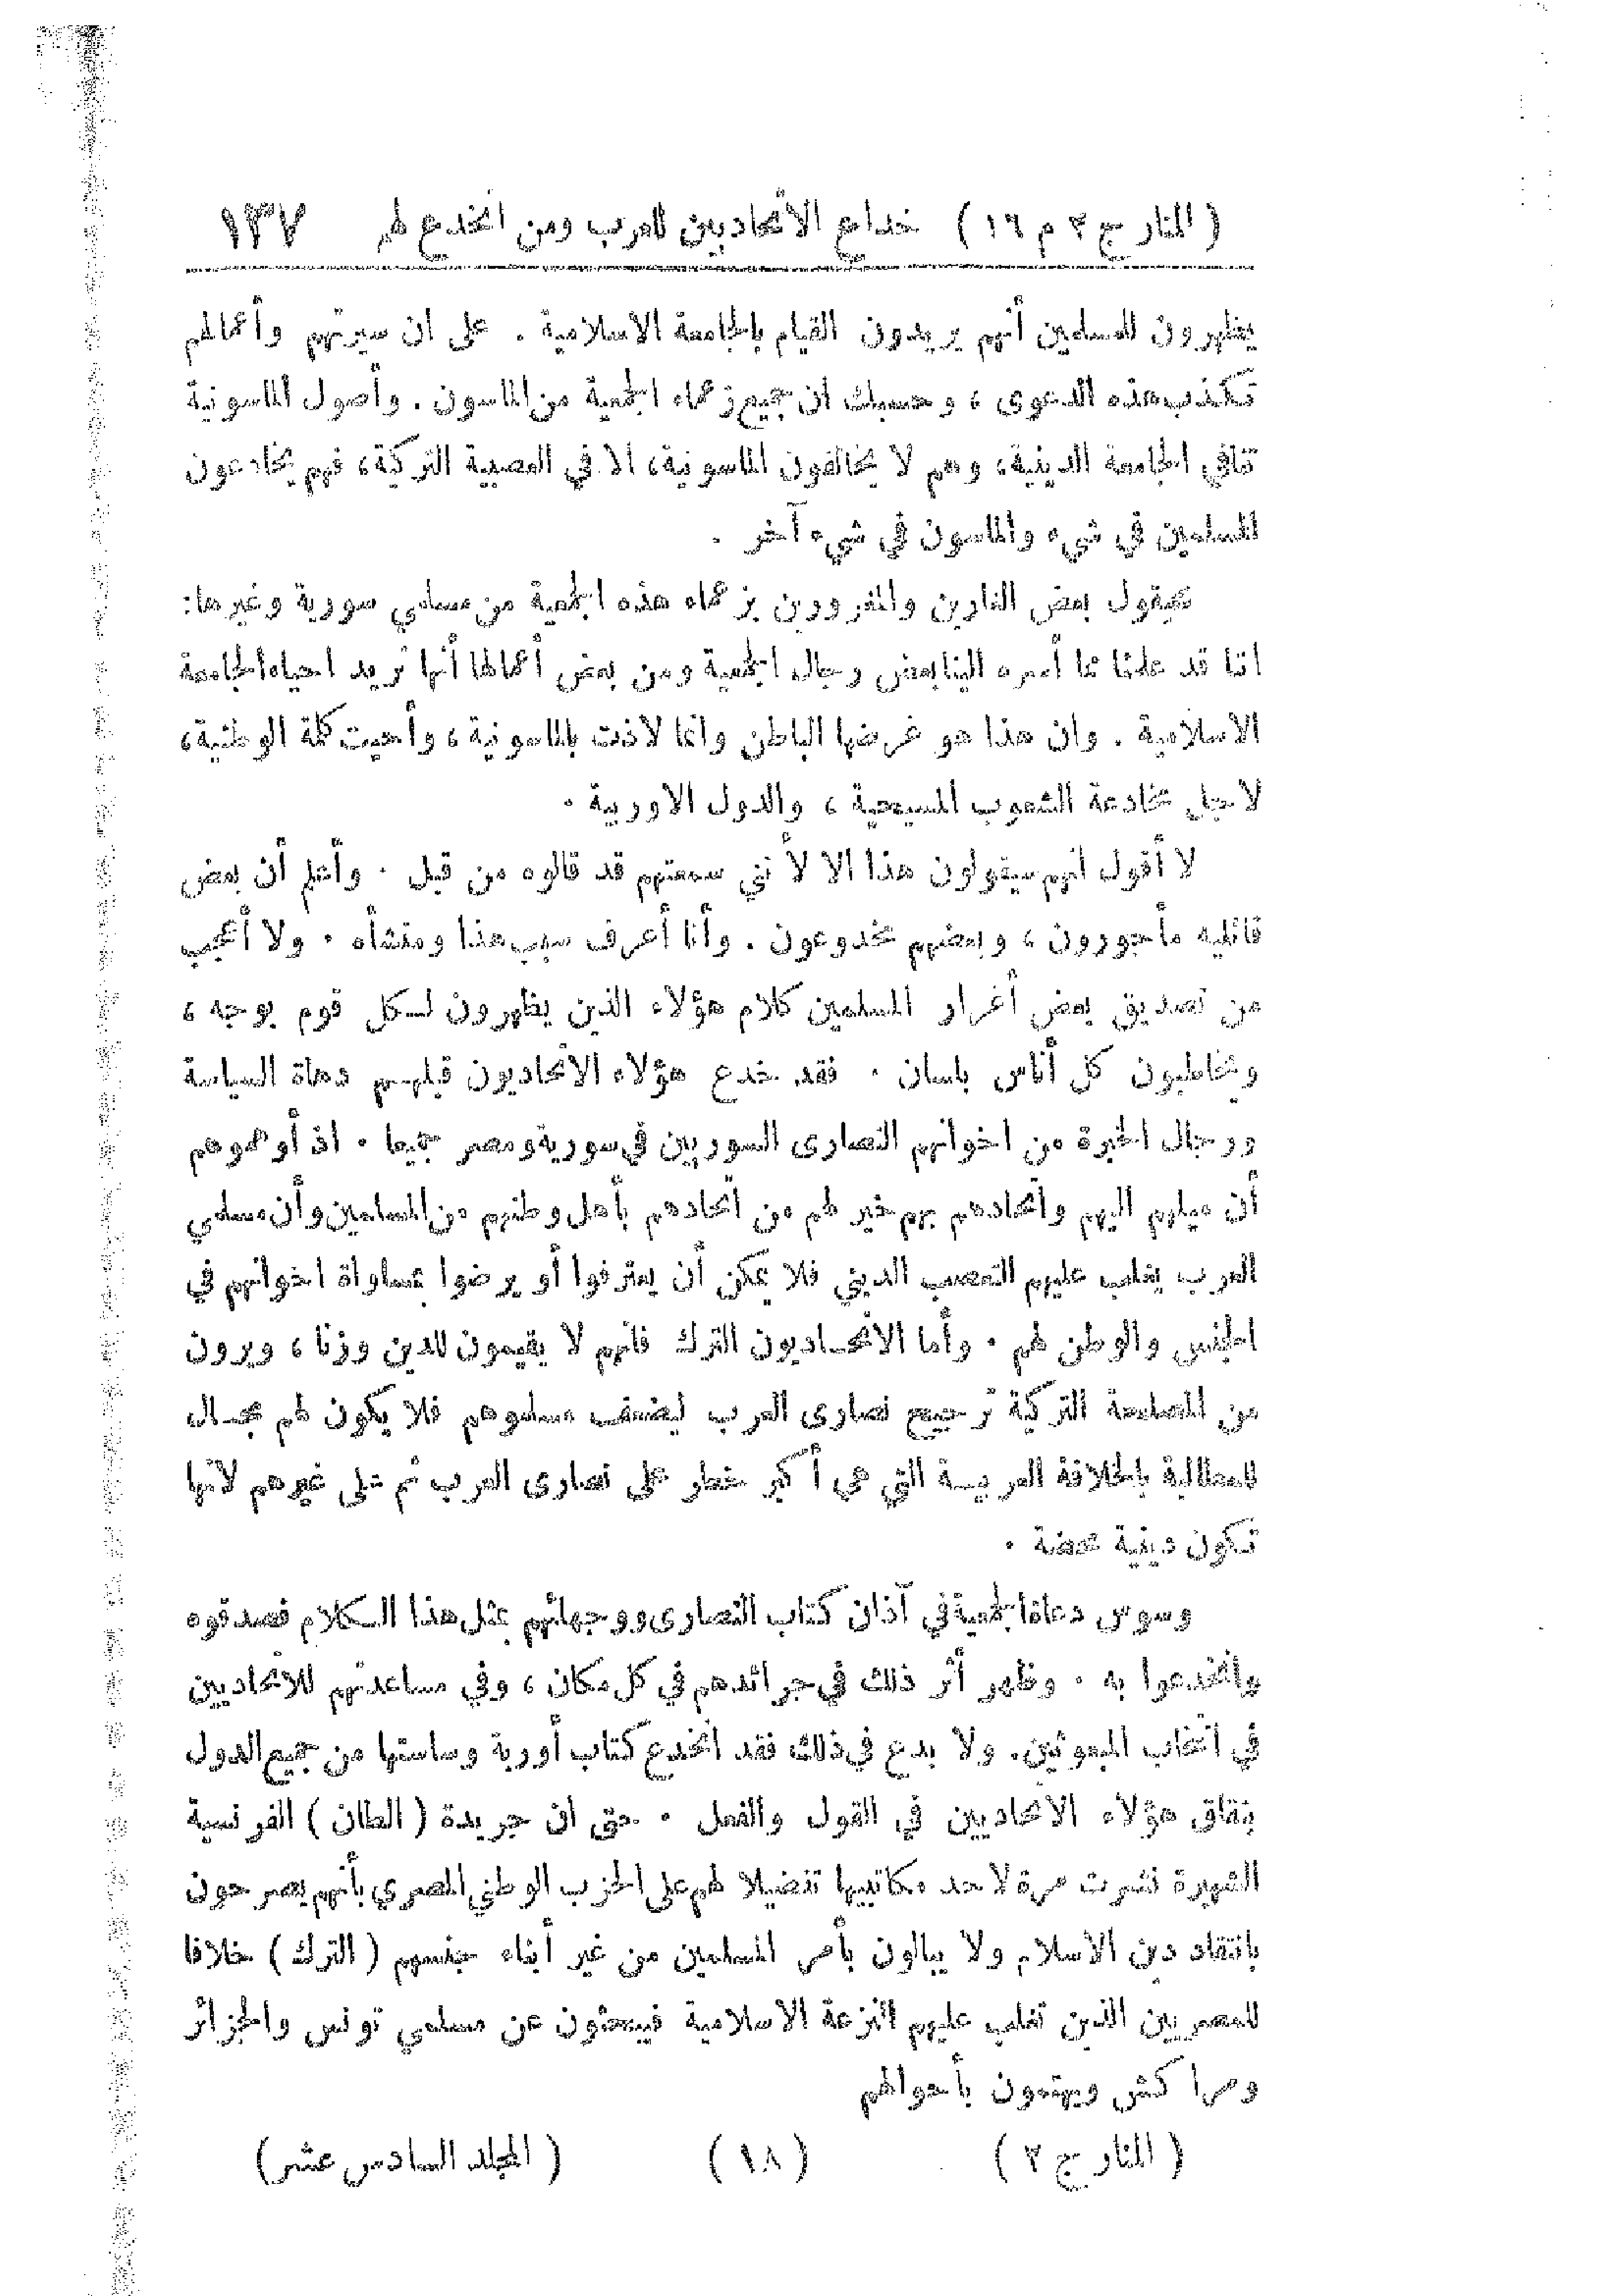 ( المنار ج ٢ م ١٦ ) خداع الاتحاديين للعرب ومن انخدع لهم ١٣٧
يظهرون للمسلمين أنهم يريدون القيام بالجامعة الاسلامية . على ان سيرتهم وأعمالهم
تكذب هذه الدعوى ، وحسبك ان جميع زعماء الجمعية من الماسون . وأصول الماسونية
تنافي الجامعة الدينية، وهم لا يخالفون الماسونية، الا في العصبية التركية، فهم يخادعون
المسلمين في شيء والماسون في شيء آخر .
سيقول بعض الغارين والمغرورين بزعماء هذه الجمعية من مسلمي سورية وغيرها:
اننا قد علمنا مما أسره الينا بعض رجال الجمعية ومن بعض أعمالها أنها تريد احياء الجامعة
الاسلامية . وان هذا هو غرضها الباطن وانما لاذت بالماسونية ، وأحيت كلمة الوطنية،
لاجل مخادعة الشعوب المسيحية ، والدول الاوربية .
لا أقول انهم سيقولون هذا الا لأنني سمعتهم قد قالوه من قبل . وأعلم أن بعض
قائليه مأجورون ، وبعضهم مخدوعون . وأنا أعرف سبب هذا ومنشأه . ولا أعجب
من تصديق بعض أغرار المسلمين كلام هؤلاء الذين يظهرون لكل قوم بوجه ،
ويخاطبون كل أناس بلسان . فقد خدع هؤلاء الاتحاديون قبلهم دهاة السياسة
ورجال الخبرة من اخوانهم النصارى السوريين في سورية ومصر جميعا . اذ أوهموهم
أن ميلهم اليهم واتحادهم بهم خير لهم من اتحادهم بأهل وطنهم من المسلمين وأن مسلمي
العرب يغلب عليهم التعصب الديني فلا يمكن أن يعترفوا أو يرضوا بمساواة اخوانهم في
الجنس والوطن لهم . وأما الاتحاديون الترك فانهم لا يقيمون للدين وزنا ، ويرون
من المصلحة التركية ترجيح نصارى العرب ليضعف مسلموهم فلا يكون لهم مجال
للمطالبة بالخلافة العربية التي هي أكبر خطر على نصارى العرب ثم على غيرهم لانها
تكون دينية محضة .
وسوس دعاة الجمعية في آذان كتاب النصارى ووجهائهم بمثل هذا الكلام فصدقوه
وانخدعوا به . وظهر أثر ذلك في جرائدهم في كل مكان ، وفي مساعدتهم للاتحاديين
في انتخاب المبعوثين. ولا بدع في ذلك فقد انخدع كتاب أوربة وساستها من جميع الدول
بنفاق هؤلاء الاتحاديين في القول والفعل . حتى ان جريدة ( الطان ) الفرنسية
الشهيرة نشرت مرة لاحد مكاتبيها تفضيلا لهم على الحزب الوطني المصري بأنهم يصرحون
بانتقاد دين الاسلام ولا يبالون بأمر المسلمين من غير أبناء جنسهم ( الترك ) خلافا
للمصريين الذين تغلب عليهم النزعة الاسلامية فيبحثون عن مسلمي تونس والجزائر
ومراكش ويهتمون بأحوالهم
( المنار ج ٢ ) ( ١٨ ) ( المجلد السادس عشر )